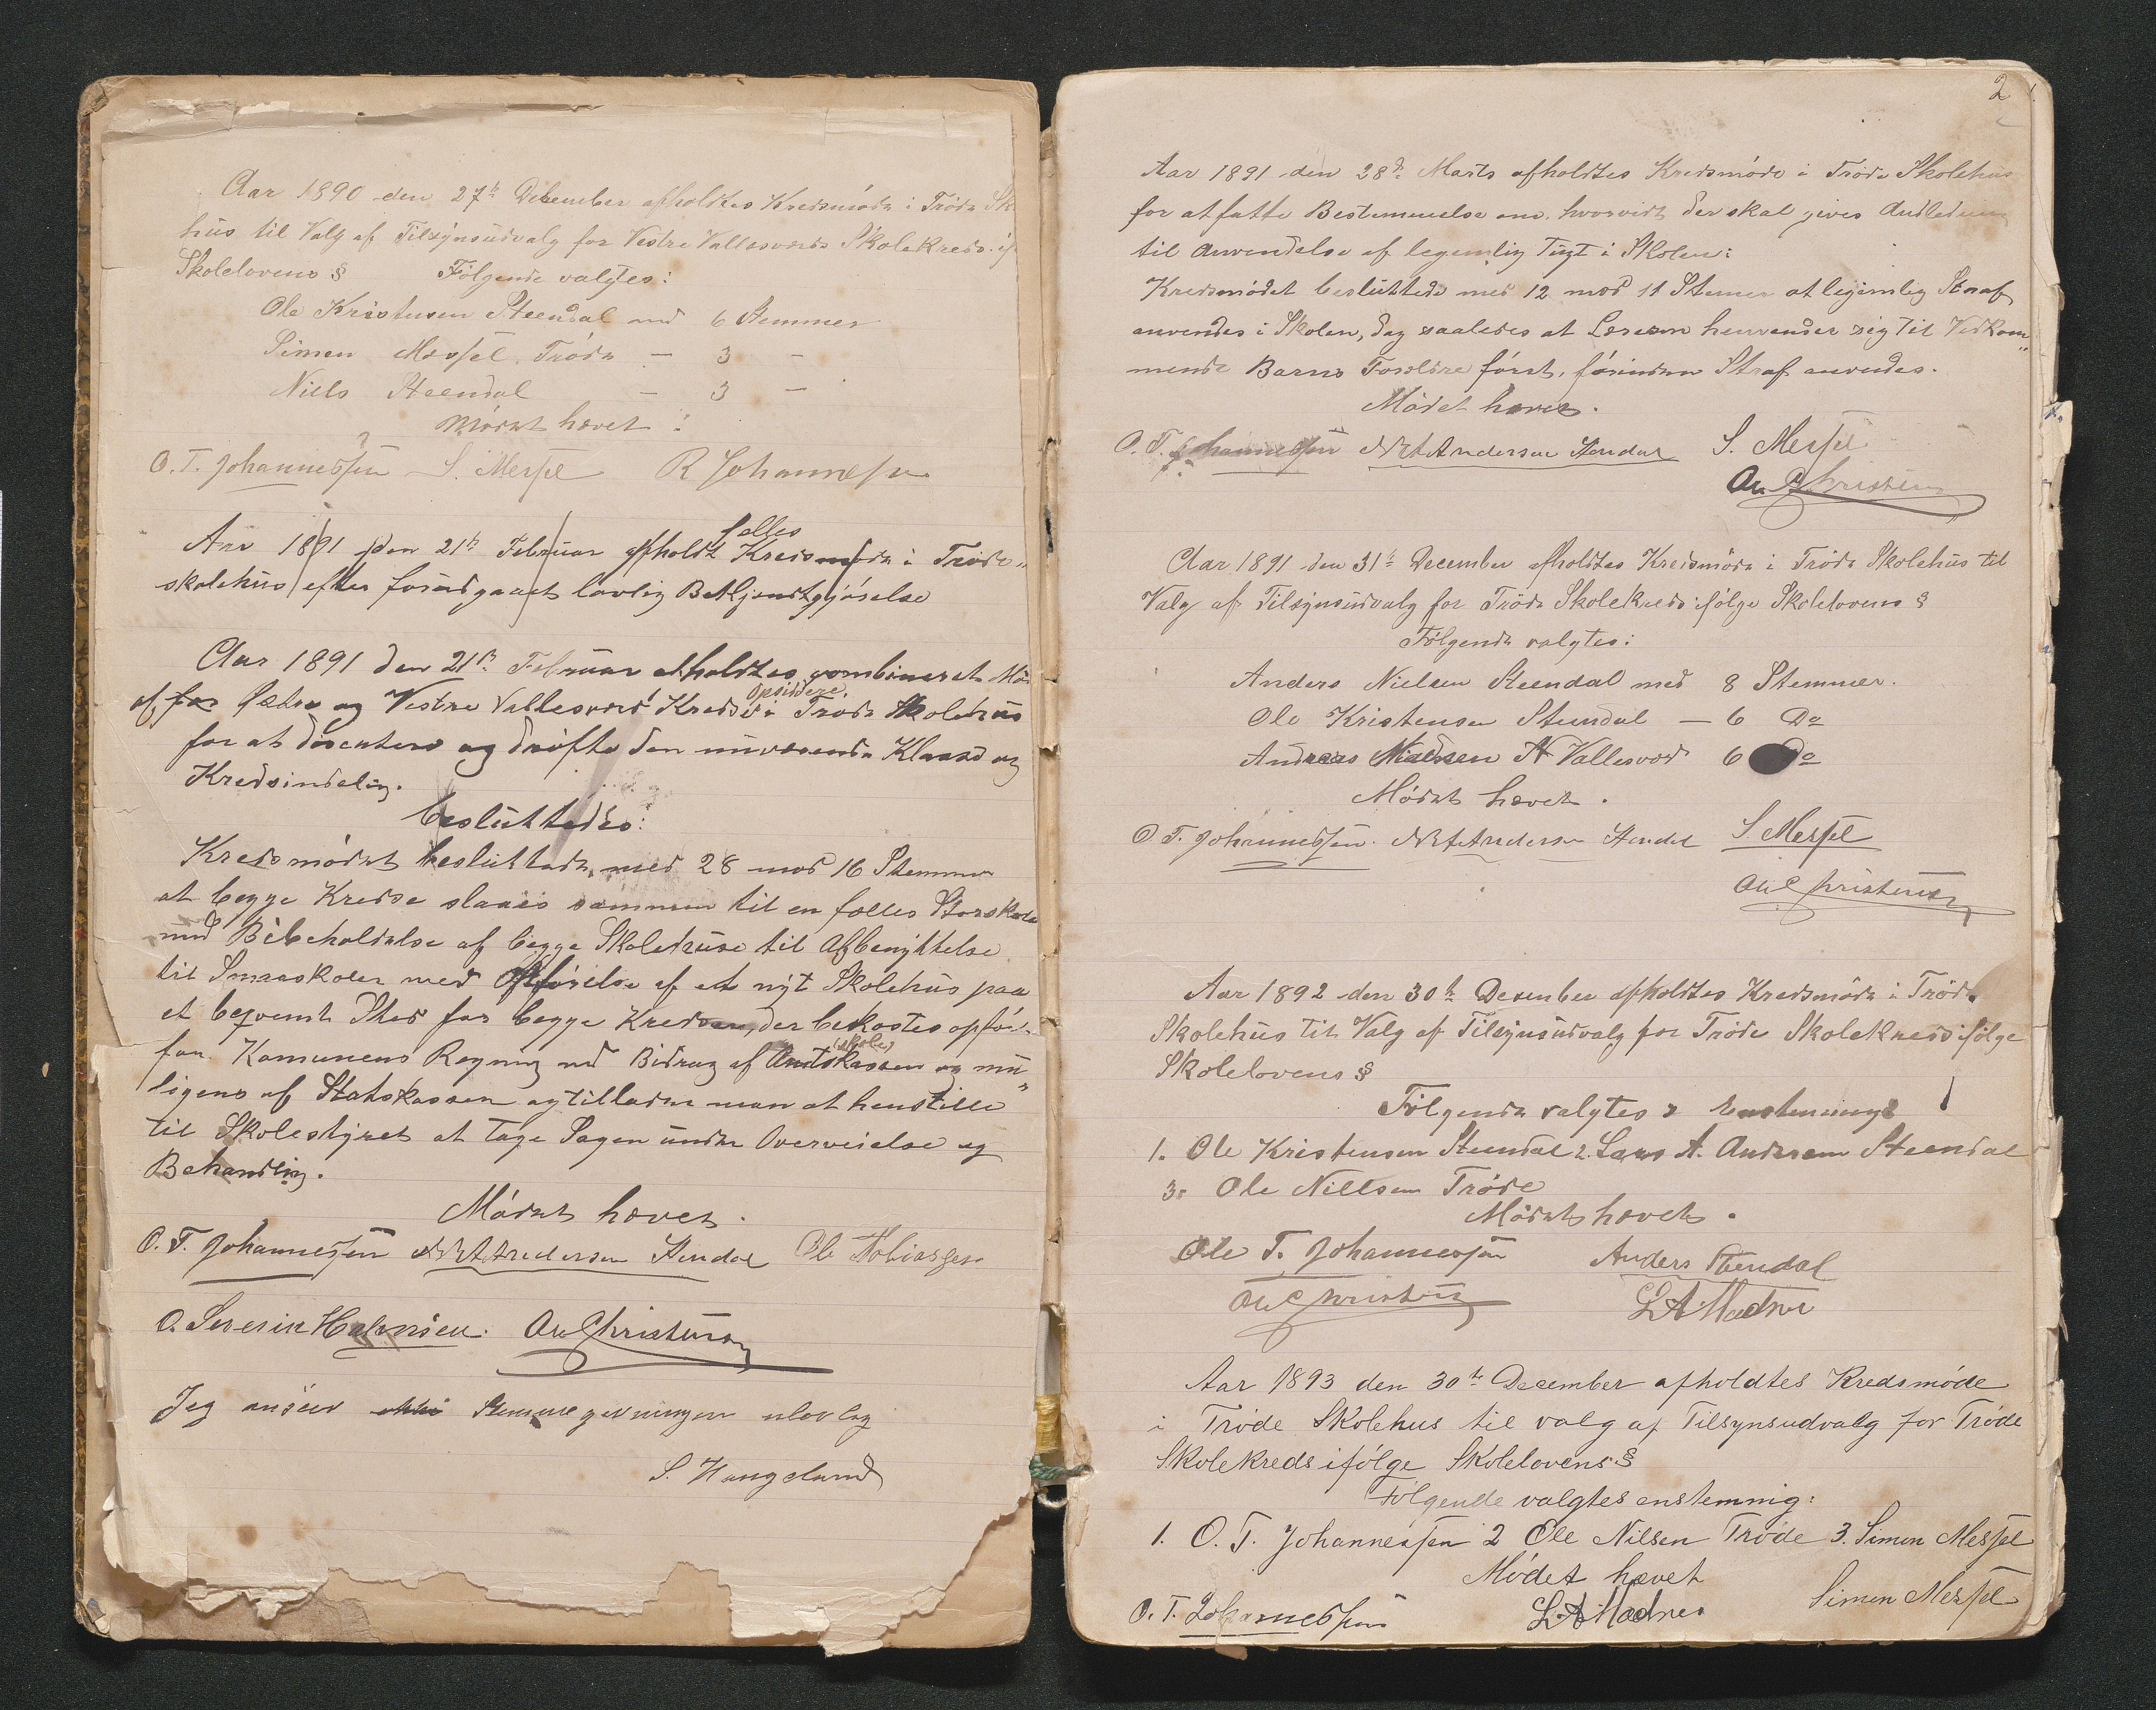 Aar 1890 den 27de December afholdtes Kredsmöde i Tröde Sk
hus til Valg af Tilsynsudvalg for Vestre Vallesværds Skolekreds if
Skolelovens § Fölgende valgtes:
Ole Kristensen Steendal med 6 Stemmer
Simen Messel Tröde - 3 -
Niels Steendal - 3 -
Mödet hævet:
O. T. Johannessen S. Messel R Johannesse
fælles
Aar 1891 den 21de Februar afholdt Kredsmöde i Tröde„
skolehus efter forudgaaet lovlig Bekjendtgjörelse
Aar 1891 den 21de Februar afholdtes combineret Mö
Opsiddere
af for Östre og Vestre Vallesværd Kredse i Tröde Skolehus
for at discutere og dröfte den nuværende Klasse og
Kredsindeling.
besluttedes:
Kredsmödet besluttede med 28 mod 16 Stemmer
at begge Kredse slaaes sammen til en fælles Storskole
med Bibeholdelse af begge Skolehuse til Afbenyttelse
til Smaaskoler med Opförelse af et nyt Skolehus paa
et beqvemt Sted for begge Kredser, der bekostes opfört
(skole)
for Komunens Regning med Bidrag af Amtskassen og mu„
ligens af Statskassen og tillader man at henstille
til Skolestyret at tage Sagen under Overveielse og
Behandling.
Mödet hævet.
O. T. Johannessen N A Andersen Stendal Ole Tobiassen
O. Severin Halvorsen. Ole Christensen
Jeg anseer ikke Stemmegivningen ulovlig
S. Haugelund
2
Aar 1891 den 28de Marts afholdtes Kredsmöde i Tröde Skolehus
for at fatte Bestemmelse om hvorvidt der skal gives Andledning
til Anvendelse af legemlig Tugt i Skolen:
Kredsmödet besluttede med 12 mod 11 Stemer at legemlig Straf
anvendes i Skolen, dog saaledes at Læreren henvender sig til Vedkom„
mende Barns Forældre först, förinden Straf anvendes.
Mödet hævet.
O. T. Johannessen N A Andersen Stendal S. Messel
Ole Christensen
Aar 1891 den 31te December afholdtes Kredsmöde i Tröde Skolehus til
Valg af Tilsynsudvalg for Tröde Skolekreds ifölge Skolelovens §
Fölgende valgtes:
Anders Nielsen Steendal med 8 Stemmer.
Ole Kristensen Steendal - 6 Do
Andreas Nielsen N Vallesvord 6 Do
Mödet hævet.
O. T. Johannessen. N A Andersen Stendal S. Messel
Ole Christensen
Aar 1892 den 30te Desember afholdtes Kredsmöde i Tröde
Skolehus til Valg af Tilsynsudvalg for Tröde Skolekreds ifölge
Skolelovens §
Fölgende valgtes enstemmigt
1. Ole Kristensen Steendal 2. Lars A. Andersen Steendal
3. Ole Nillsen Tröde
Mödet hævet.
Ole T. Johannessen Anders Stendal
Ole Christensen L A Madsen
Aar 1893 den 30te December afholdtes Kredsmöde
i Tröde Skolehus til valg af Tilsynsudvalg for Tröde
Skolekreds ifölge Skolelovens §
Fölgende valgtes enstemmig:
1. O. T. Johannessen 2 Ole Nilsen Tröde 3. Simon Messel
Mödet hævet
O. T. Johannessen L A Madsen Simen Messel